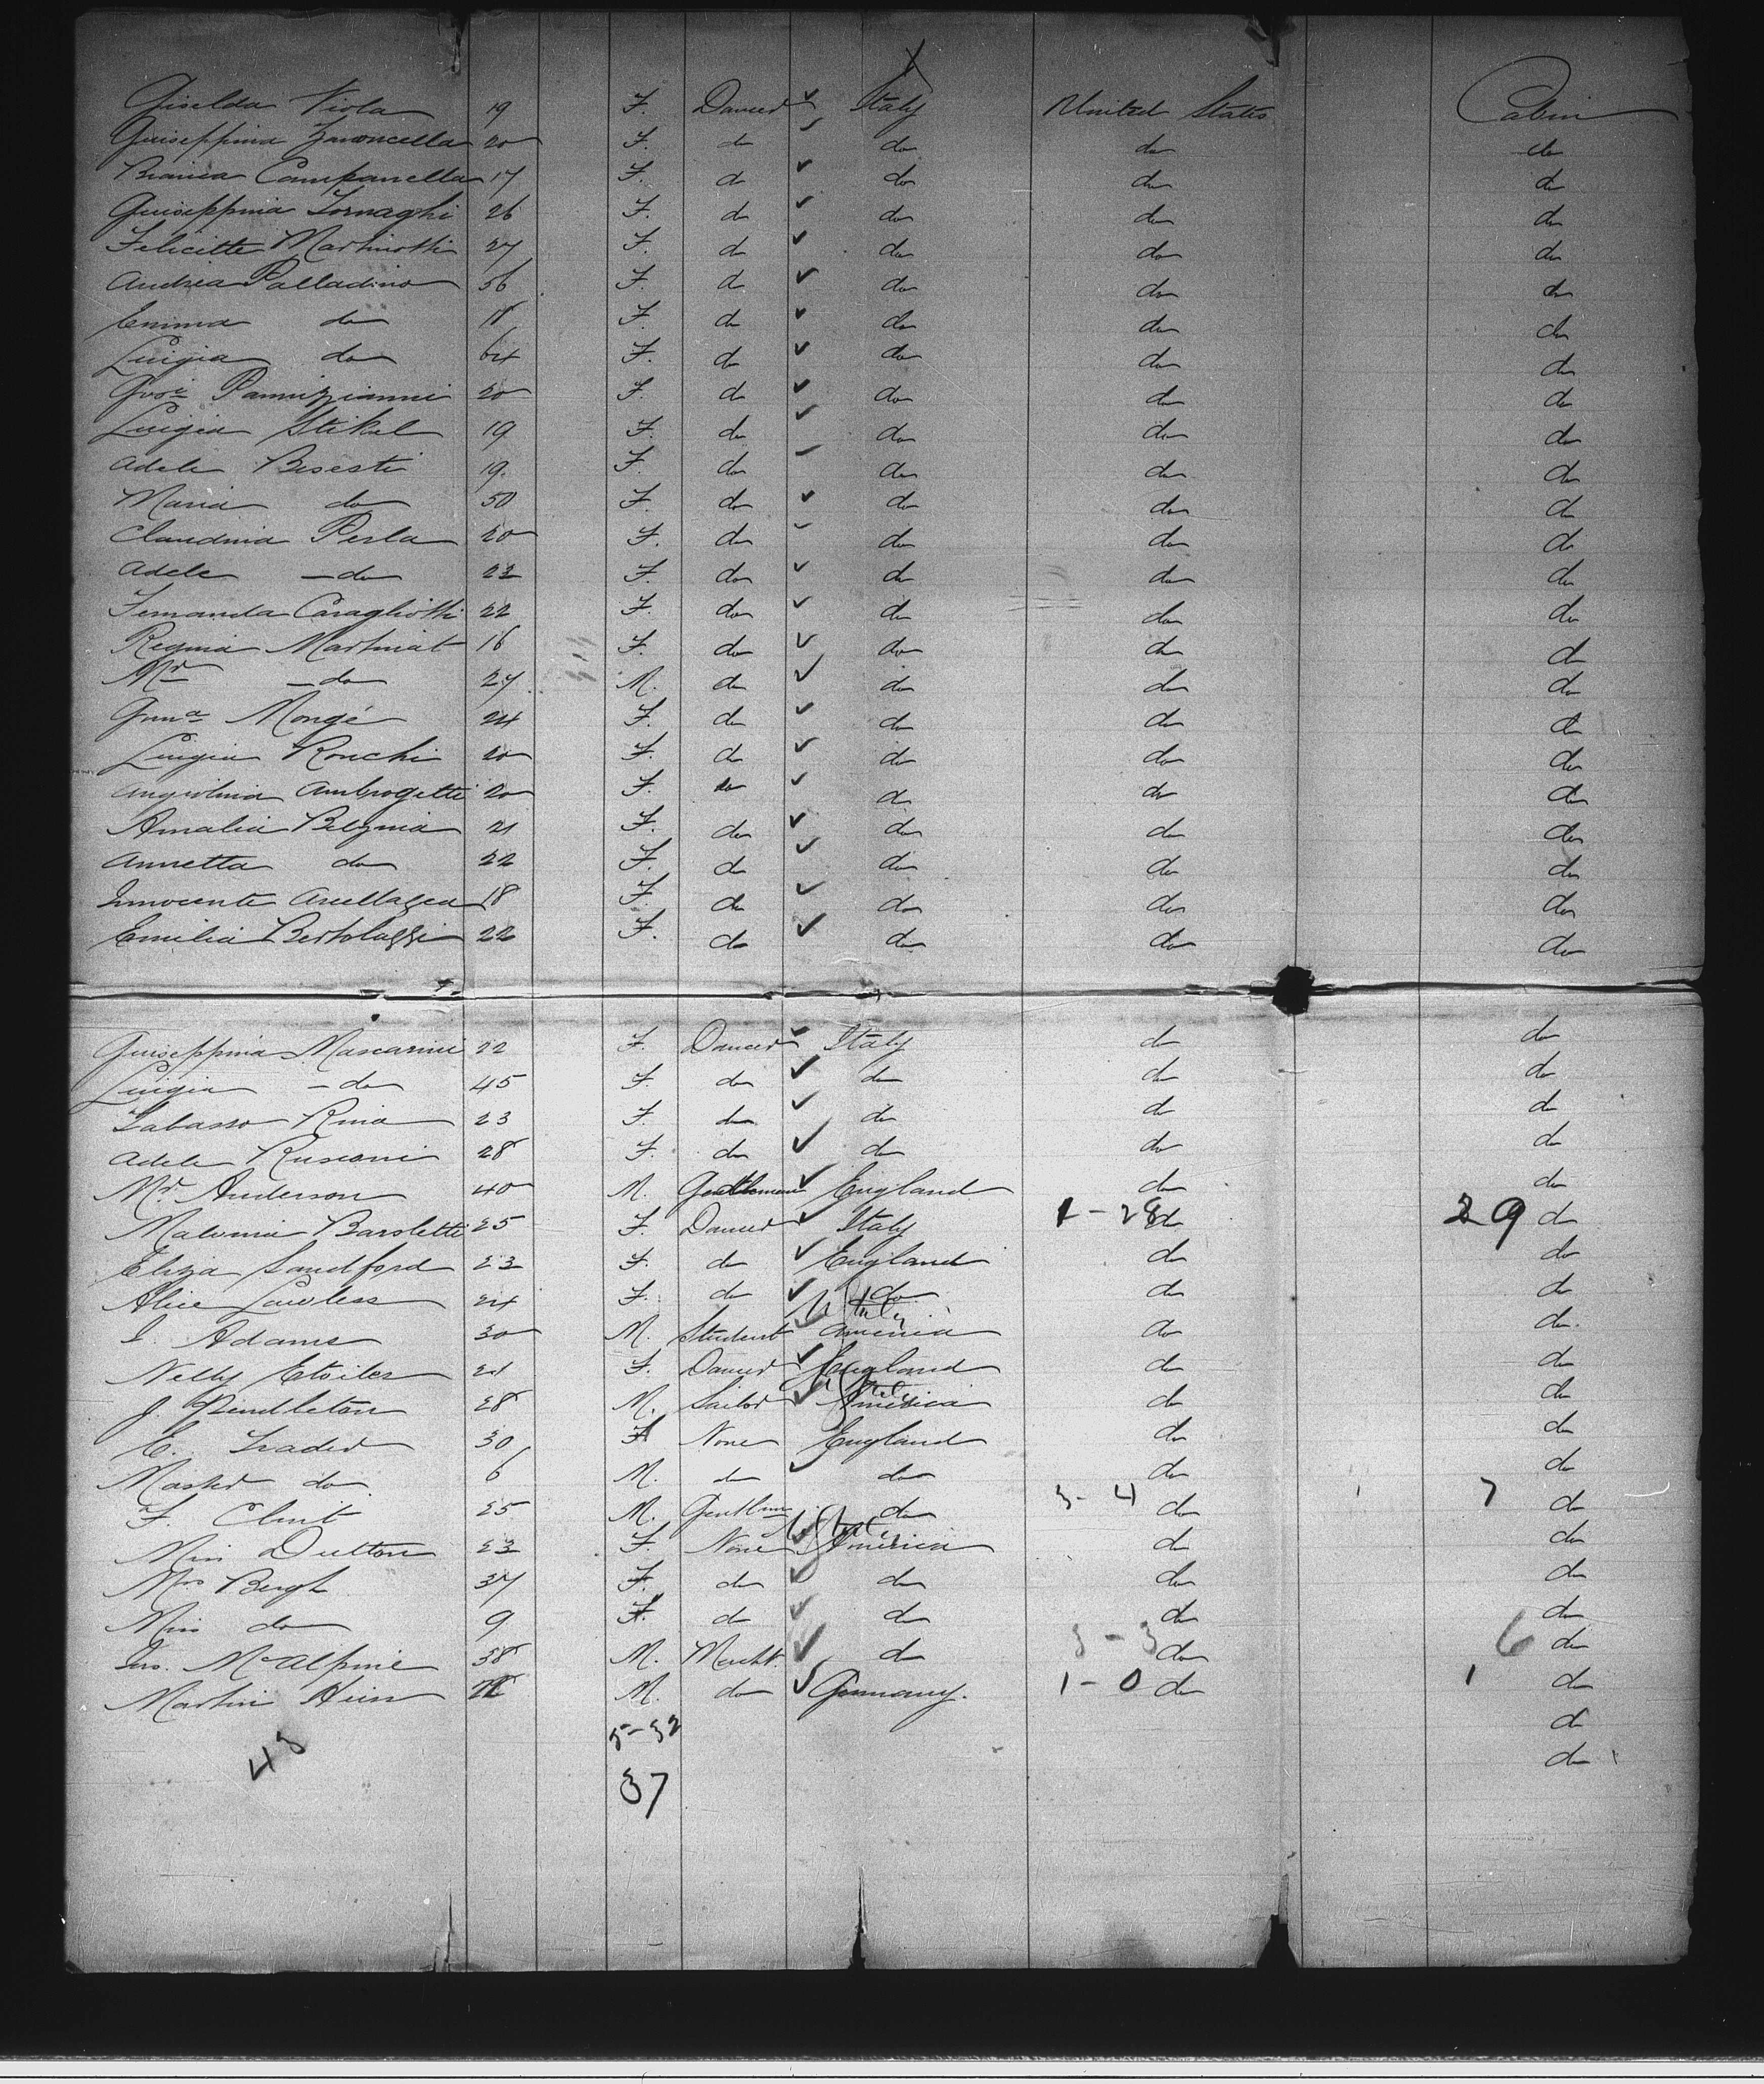 X
Giselda Viola 19 F. Dancer Italy United States Cabin
Guiseppina Zanoncella 20 F. do do do do
Bianca Campanella 17 F. do do do do
Guiseppina Tornaghi 26 F. do do do do
Felicitte Martinotti 27 F. do do do do
Andrea Palladino 56 F. do do do do
Emma do 18 F. do do do do
Luigia do 64 F. do do do do
20 F. do do do do
Luigia Stikel 19 F. do do do do
Adele Bisesti 19. F. do do do do
Maria do 50 F. do do do do
Claudina Perla 20 F. do do do do
Adele - do 23 F. do do do do
Fernanda Caragliotti 22 F. do do do do
Regina Martinat 16 F. do do do do
Mr - do 27 M. do do do do
Monge 24 F. do do do do
Luigia Ronchi 20 F. do do do do
Angiolina Ambrogetti 20 F. do do do do
Amalia 21 F. do do do do
Annetta do 22 F. do do do do
Innocente 18 F. do do do do
Emilia Bertolazzi 22 F. do do do do
Guiseppina Mascarini 22 F. Dancer Italy do do
Luigia - do 45 F. do do do do
Rina 23 F. do do do do
Adele Rusconi 28 F. do do do do
Mr Anderson 40 M. Gentleman England do do
Baroletti 25 F. Dancer Italy 1-28 do 29 do
Eliza Sandford 23 F. do England do do
Alice Lawless 24 F. do do do do
Adams 30 M. Student America do do.
Nelly Etoiles 21 F. Dancer England do do
J. Pendleton 28 M. Sailor America do do
E. 30 F None England do do
Master do 6 M. do do do do
F. 25 M. Gentlman do 3-4 do 7 do
Miss Dutton 23 F. None America do do
Mrs Bergh 37 F. do do do do
Miss do 9 F. do do do do
Jno. McAlpine 38 M. Mercht. do 3-3 do 6 do
Martin Hein M. do Germany. 1-0 do 1 do
5-32 do
43 37 do